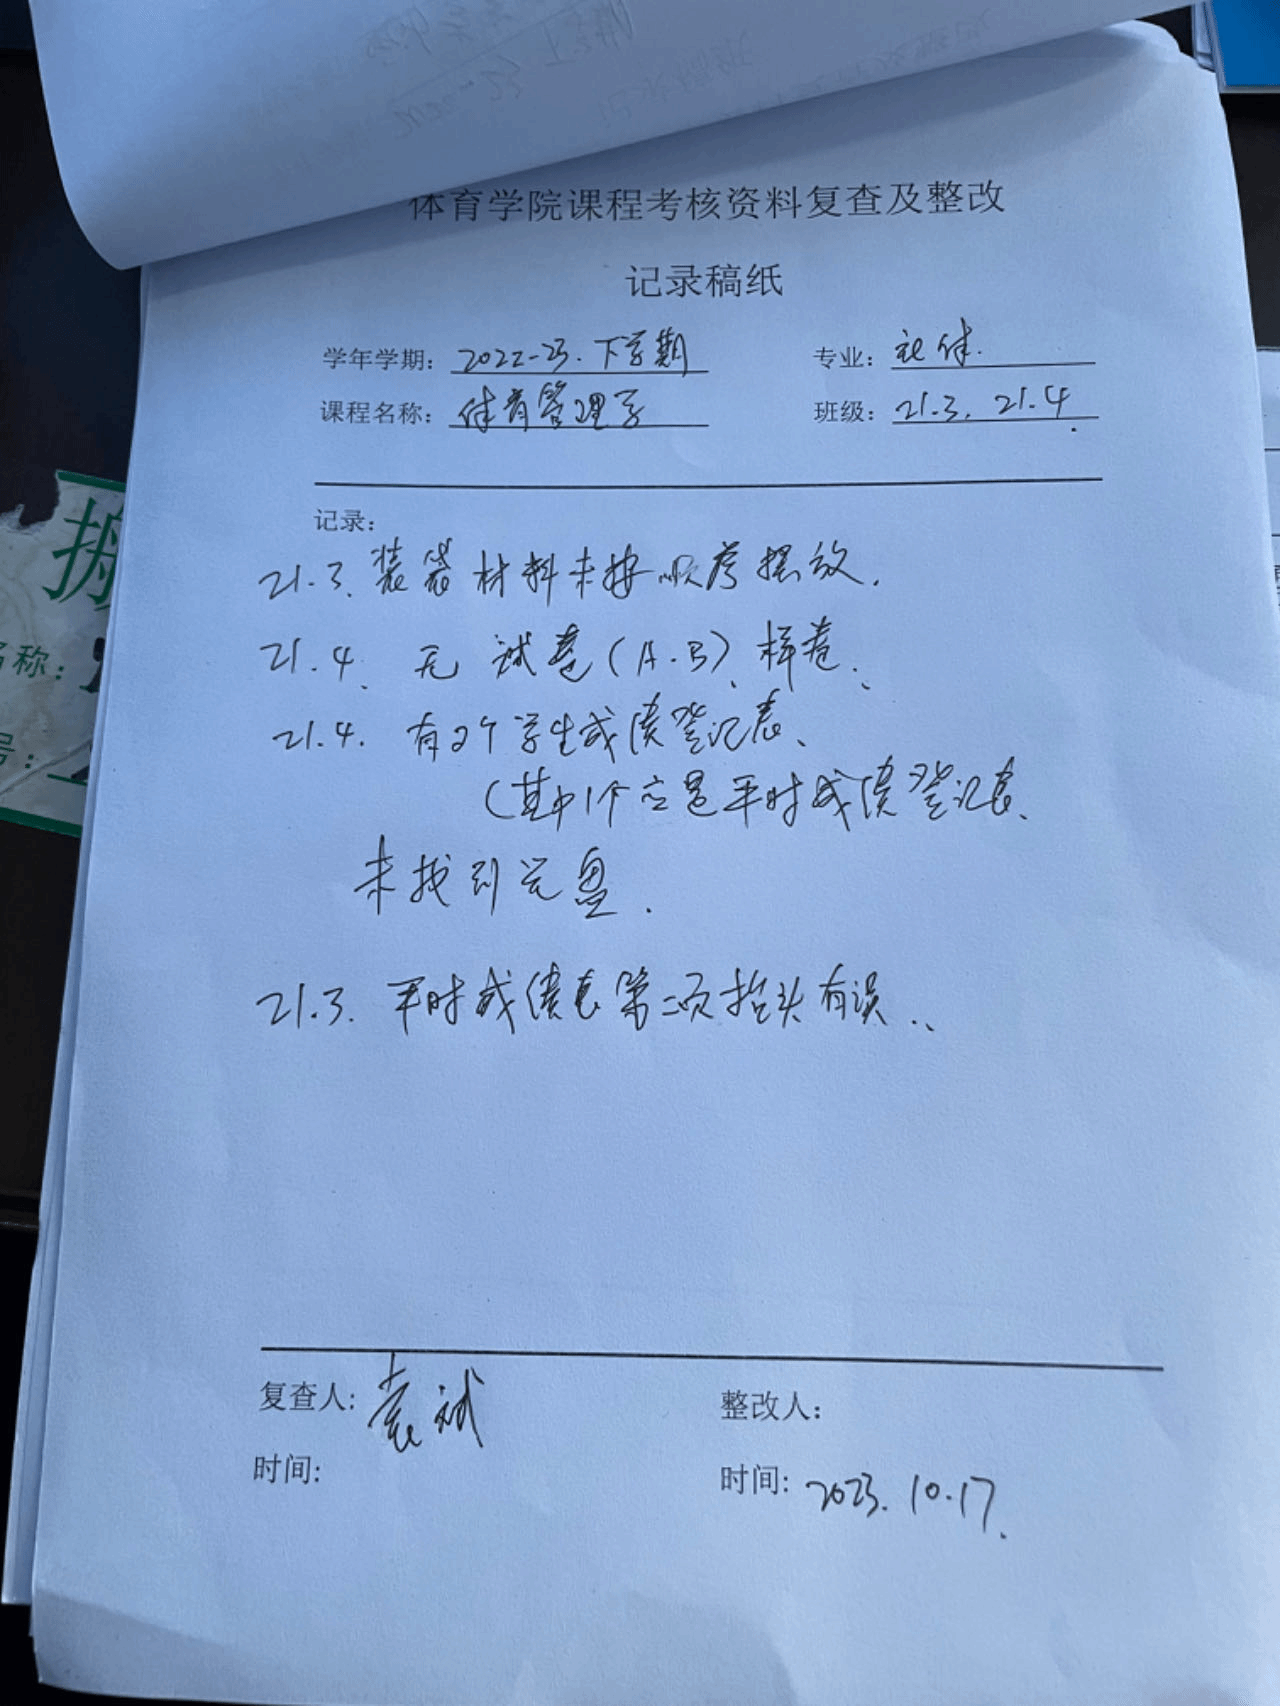 体育学院课程考核资料复查及整改
记录稿纸
学年学期: 2022-23.下学期 专业: 社体.
课程名称: 体育管理学 班级: 21.3. 21.4
记录:
21.3.装袋材料未按顺序摆放.
21.4. 无试卷(A.B)、样卷、
21.4. 有2个学生成绩登记表、
(其中1个应是平时成绩登记表、
未找到光盘.
21.3. 平时成绩表第二页抬头有误..
复查人: 袁斌 整改人:
时间: 时间: 2023.10.17.
名称:
号: